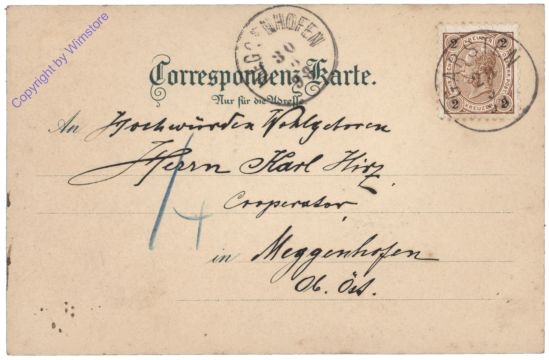 Copyright by Wimstore
MEGGENHOFEN
30
Correspondenz-Karte.
Nur für die Adresse.
An Hochwürden Wohlgeboren
Herrn Karl Hirz
Cooperator
in Meggenhofen
Ob. Öst.
2 2
2
KREUZER